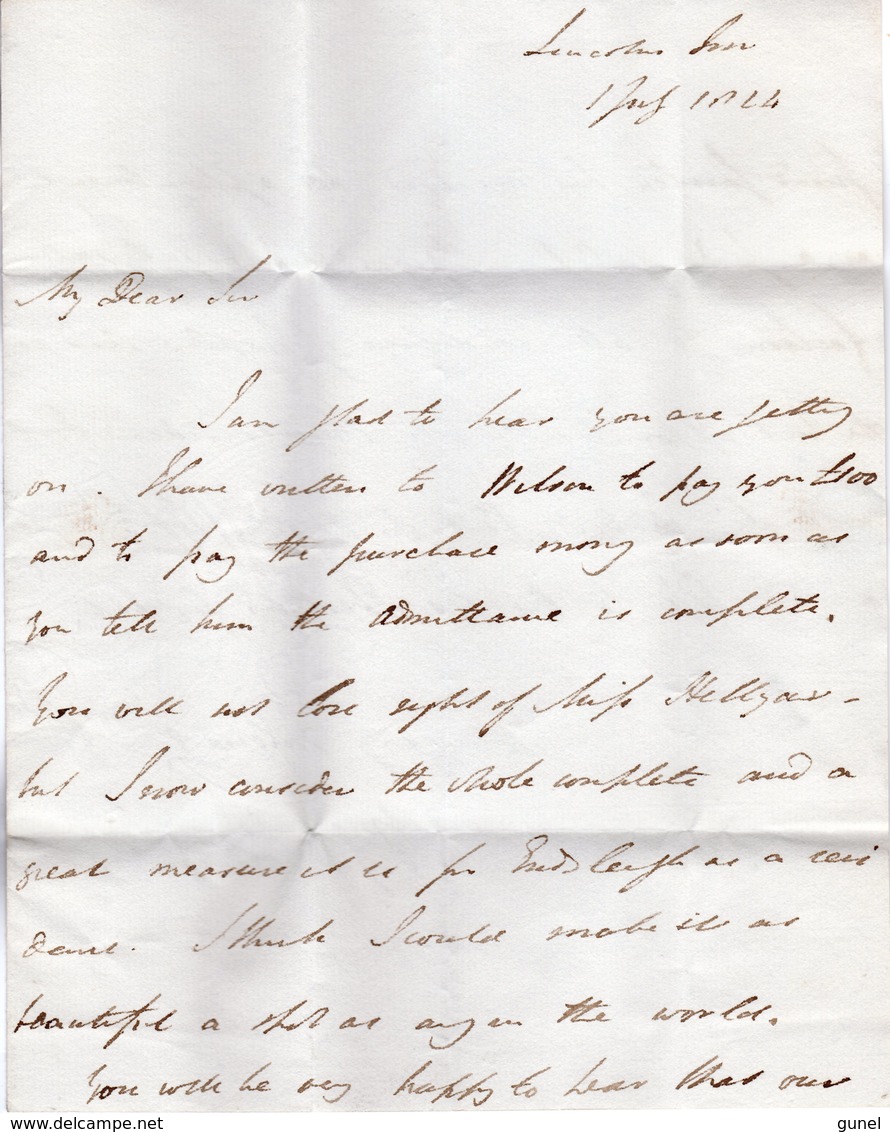 Lincolns Inn
1 July 1824
My Dear Sir
I am glad to hear you are getting
on. I have written to Wilson to pay you £500
and to pay the purchase money as soon as
you tell him the admittance is complete.
You will not lose sight of Miss Hellyar -
but I now consider the whole complete and a
great measure it is for Endsleigh as a resi
dence. I think I could make it as
beautiful a spot as any in the world.
You will be very happy to hear that our
www.delcampe.net
gunel